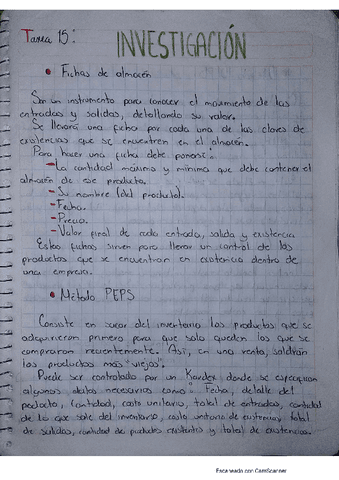 Tarea 15:
INVESTIGACIÓN
• Fichas de almacén
Son un instrumento para conocer el movimiento de las
entradas y salidas, detallando su valor.
Se llevará una ficha por cada una de las clases de
existencias que se encuentren en el almacén.
Para hacer una ficha debe ponerse:
- La cantidad máxima y mínima que debe contener el
almacén de ese producto.
- Su nombre (del producto).
- Fecha.
- Precio.
- Valor final de cada entrada, salida y existencia
Estas fichas sirven para llevar un control de los
productos que se encuentran en existencia dentro de
una empresa.
• Método PEPS
Consiste en sacar del inventario los productos que se
adquirieron primero para que solo queden los que se
compraron recientemente. Así, en una venta, saldrán
los productos más "viejos".
Puede ser controlado por un Kardex, donde se especifican
algunos datos necesarios como: Fecha, detalle del
producto, (cantidad, costo unitario, total de entradas, cantidad
de lo que sale del inventario, costo unitario de existencias total
de salidas, cantidad de productos existentes y total de existencias.
Escaneado con CamScanner